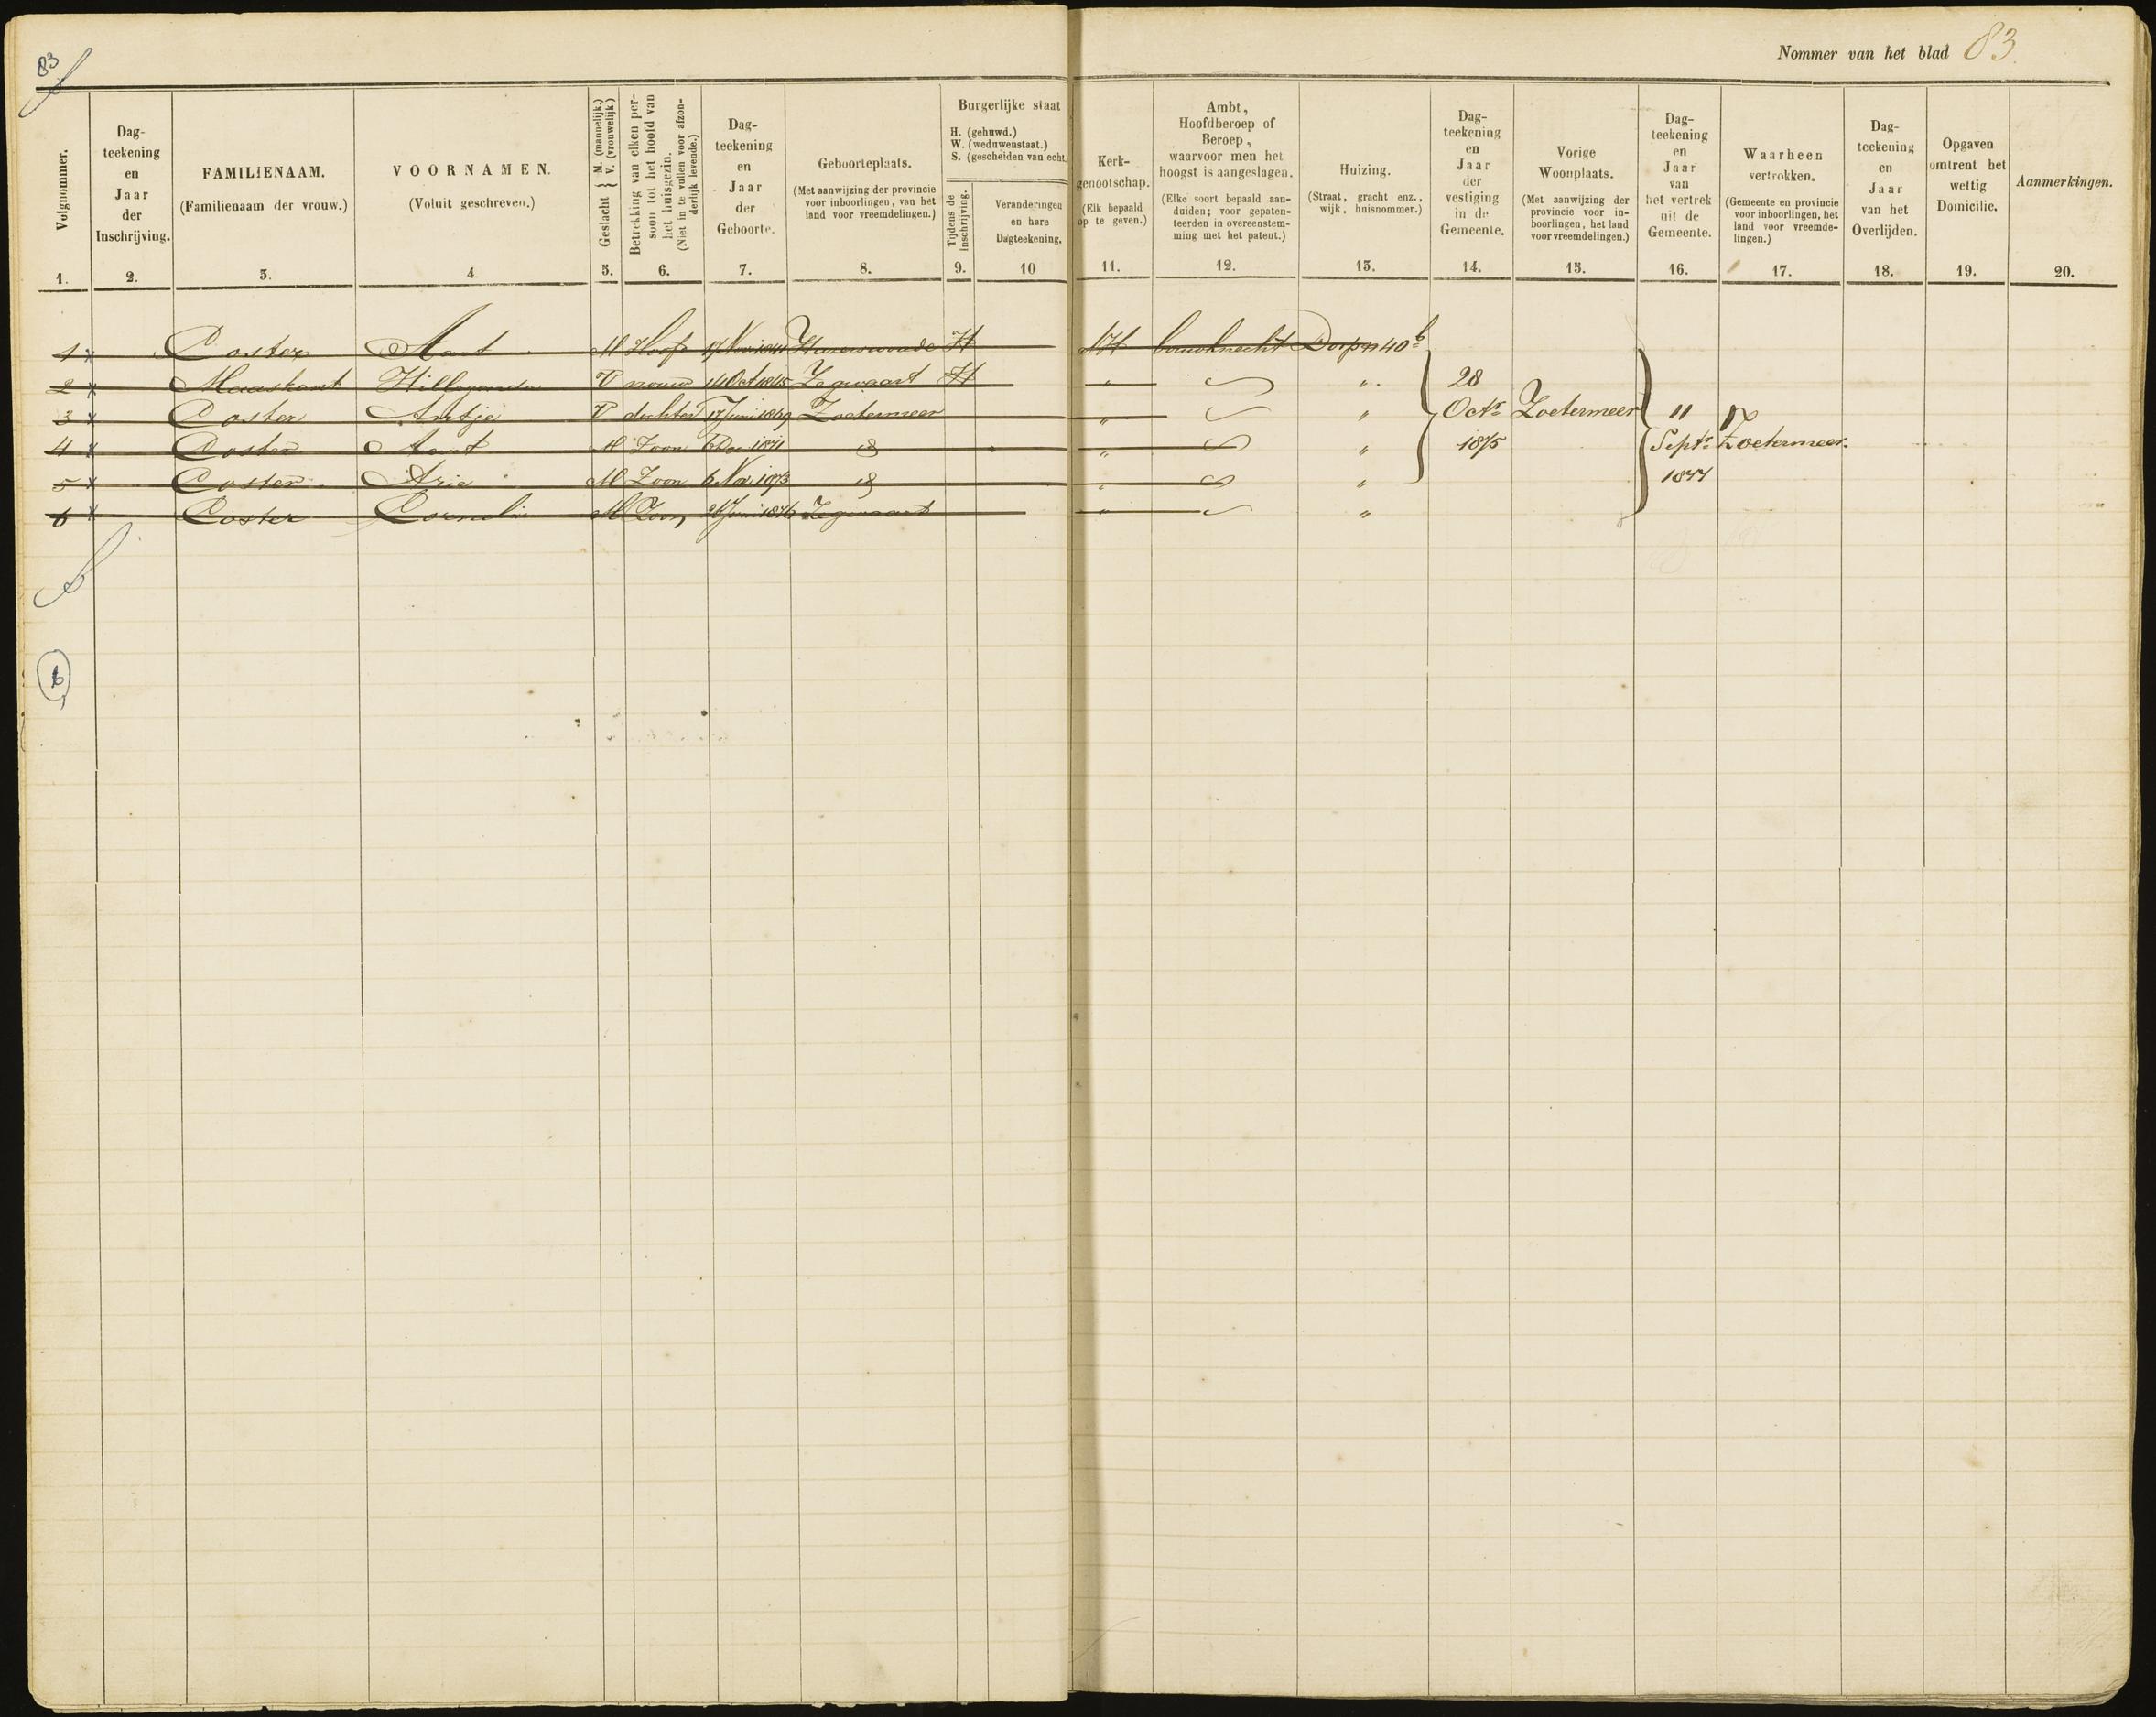 83
Nommer van het blad 83.
Volgnommer.
1.
Dag-
teekening
en
Jaar
der
Inschrijving.
2.
FAMILIENAAM.
(Familienaam der vrouw.)
3.
VOORNAMEN.
(Voluit geschreven.)
4
Geslacht { M. (mannelijk.) V. (vrouwelijk.)
5.
Betrekking van elken per-
soon tot het hoofd van
het huisgezin.
(Niet in te vullen voor afzon-
derlijk levende.)
6.
Dag-
teekening
en
Jaar
der
Geboorte.
7.
Geboorteplaats.
(Met aanwijzing der provincie
voor inboorlingen, van het
land voor vreemdelingen.)
8.
Burgerlijke staat
H. (gehuwd.)
W. (weduwenstaat.)
S. (gescheiden van echt.
Tijdens de
Inschrijving.
9.
Veranderingen
en hare
Dagteekening.
10
Kerk-
genootschap.
(Elk bepaald
op te geven.)
11.
Ambt,
Hoofdberoep of
Beroep,
waarvoor men het
hoogst is aangeslagen.
(Elke soort bepaald aan-
duiden; voor gepaten-
teerden in overeenstem-
ming met het patent.)
12.
Huizing.
(Straat, gracht enz.,
wijk, huisnommer.)
13.
Dag-
teekening
en
Jaar
der
vestiging
in de
Gemeente.
14.
Vorige
Woonplaats.
(Met aanwijzing der
provincie voor in-
boorlingen, het land
voor vreemdelingen.)
15.
Dag-
teekening
en
Jaar
van
het vertrek
uit de
Gemeente.
16.
Waarheen
vertrokken.
(Gemeente en provincie
voor inboorlingen, het
land voor vreemde-
lingen.)
17.
Dag-
teekening
en
Jaar
van het
Overlijden.
18.
Opgaven
omtrent het
wettig
Domicilie.
19.
Aanmerkingen.
20.
1 x Coster Aart M Hoofd 17 Nov 1844 Hazerswoude H NH bouwknecht Dorp n 40 b
2 x Maaskant Hillegonda V vrouw 14 Oct 1845 Zegwaart H " " 28
3 x Coster Antje V dochter 17 Juni 1869 Zoetermeer " " Octr Zoetermeer 11
4 x Coster Aart M Zoon 6 Dec 1871 " " 1875 Septr Zoetermeer.
5 x Coster Arie M Zoon 6 Nov 1873 " " 1877
6 x Coster Cornelis M Zoon 26 Juni 1876 Zegwaart " "
6